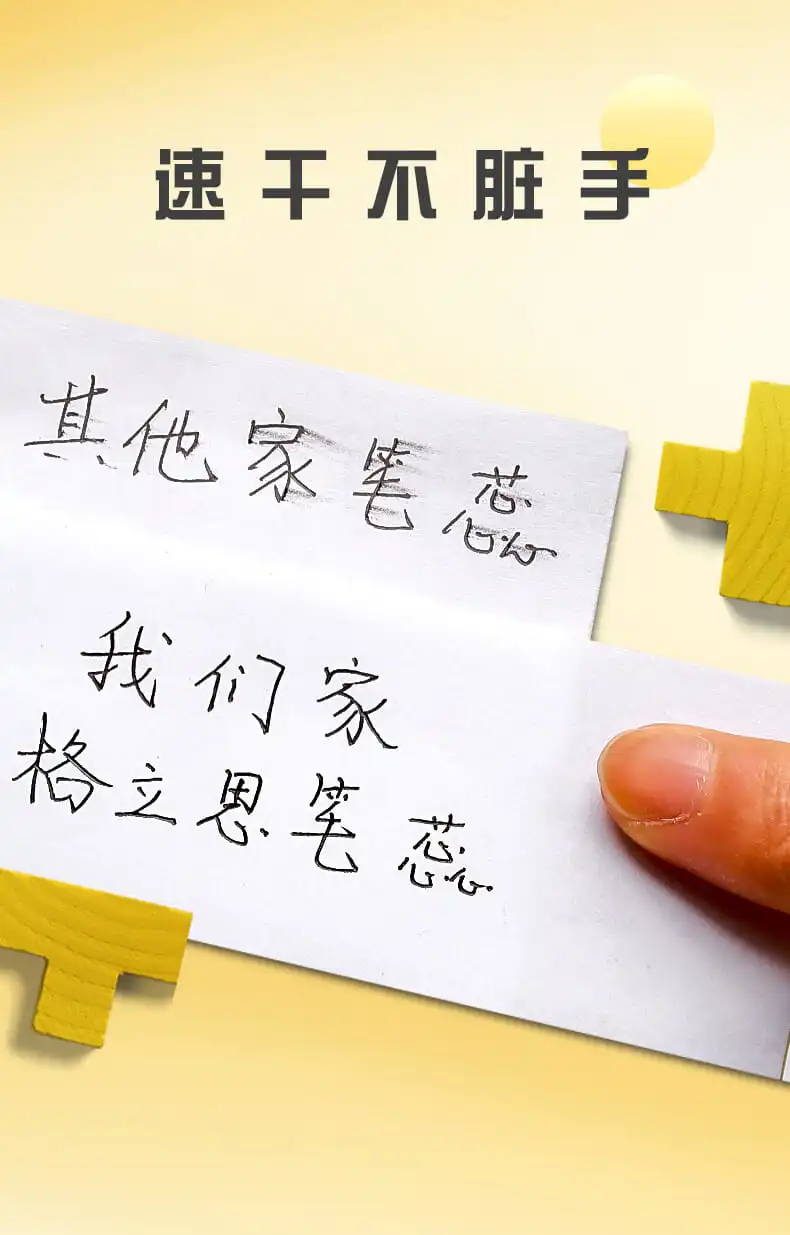 速干不脏手
其他家笔蕊
我们家
格立思笔蕊